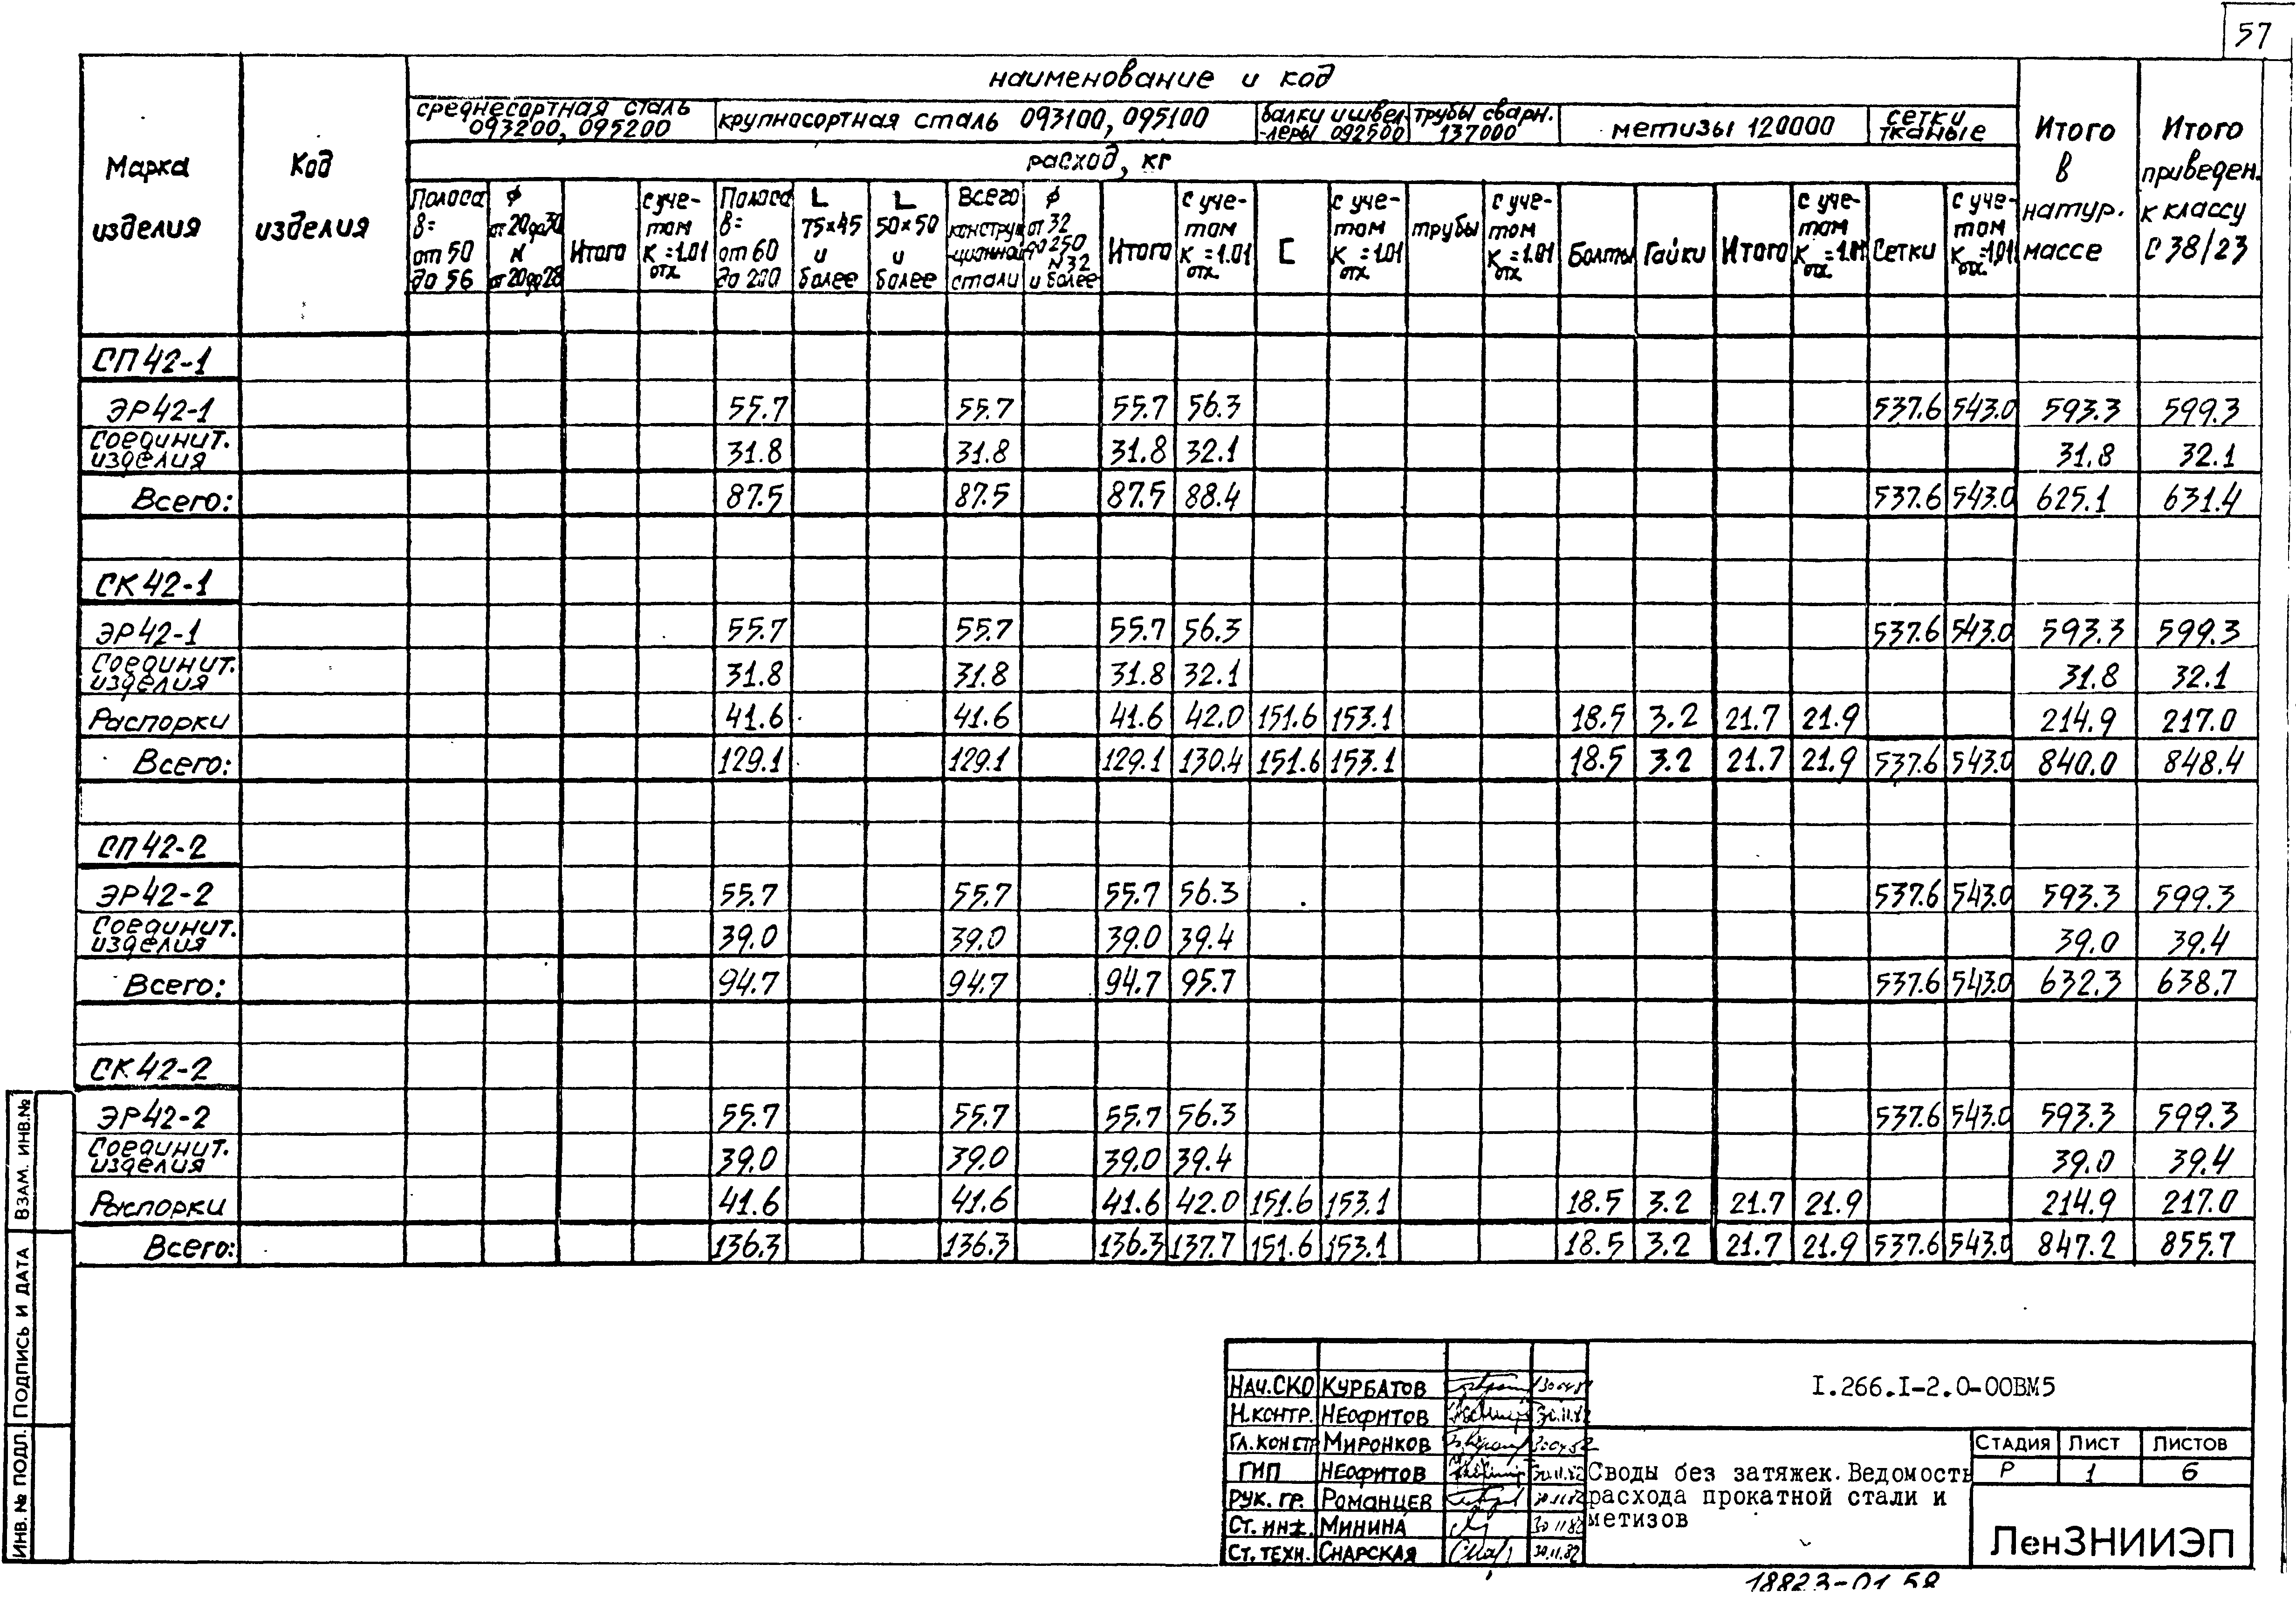 57
наименование и код
среднесортная сталь 093200, 095200
крупносортная сталь 093100, 095100
балки и швел-леры 092500
трубы сварн. 137000
метизы 120000
сетки тканые
Итого в натур. массе
Итого приведен. к классу С 38/23
Марка изделия
Код изделия
расход, кг
Полоса В= от 50 до 56
ϕ от 20 до 30 N от 20 до 28
Итого
с уче-том К отх =1.01
Полоса В= от 60 до 200
L 75×45 и более
L 50×50 и более
Всего конструк-ционной стали
ϕ от 32 до 250 N 32 и более
Итого
с уче-том К отх =1.01
[
с уче-том К отх =1.01
трубы
с уче-том К отх =1.01
Болты
Гайки
Итого
с уче-том К отх =1.01
Сетки
с уче-том К отх =1.01
СП42-1
ЭР42-1 55.7 55.7 55.7 56.3 537.6 543.0 593.3 599.3
Соединит. изделия 31.8 31.8 31.8 32.1 31.8 32.1
Всего: 87.5 87.5 87.5 88.4 537.6 543.0 625.1 631.4
СК42-1
ЭР42-1 55.7 55.7 55.7 56.3 537.6 543.0 593.3 599.3
Соединит. изделия 31.8 31.8 31.8 32.1 31.8 32.1
Распорки 41.6 41.6 41.6 42.0 151.6 153.1 18.5 3.2 21.7 21.9 214.9 217.0
Всего: 129.1 129.1 129.1 130.4 151.6 153.1 18.5 3.2 21.7 21.9 537.6 543.0 840.0 848.4
СП42-2
ЭР42-2 55.7 55.7 55.7 56.3 537.6 543.0 593.3 599.3
Соединит. изделия 39.0 39.0 39.0 39.4 39.0 39.4
Всего: 94.7 94.7 94.7 95.7 537.6 543.0 632.3 638.7
СК42-2
ЭР42-2 55.7 55.7 55.7 56.3 537.6 543.0 593.3 599.3
Соединит. изделия 39.0 39.0 39.0 39.4 39.0 39.4
Распорки 41.6 41.6 41.6 42.0 151.6 153.1 18.5 3.2 21.7 21.9 214.9 217.0
Всего: 136.3 136.3 136.3 137.7 151.6 153.1 18.5 3.2 21.7 21.9 537.6 543.0 847.2 855.7
ИНВ. № ПОДЛ. ПОДПИСЬ И ДАТА ВЗАМ. ИНВ.№
НАЧ.СКО КУРБАТОВ
Н.КОНТР. НЕОФИТОВ 30.11.82
ГЛ.КОНСТР МИРОНКОВ
ГИП НЕОФИТОВ 30.11.82
РУК. ГР. РОМАНЦЕВ 30.11.82
СТ. ИНЖ. МИНИНА 30.11.82
СТ. ТЕХН. СНАРСКАЯ 30.11.82
I.266.I-2.0-00ВМ5
Своды без затяжек. Ведомость
расхода прокатной стали и
метизов
СТАДИЯ ЛИСТ ЛИСТОВ
Р 1 6
ЛенЗНИИЭП
18823-01 58